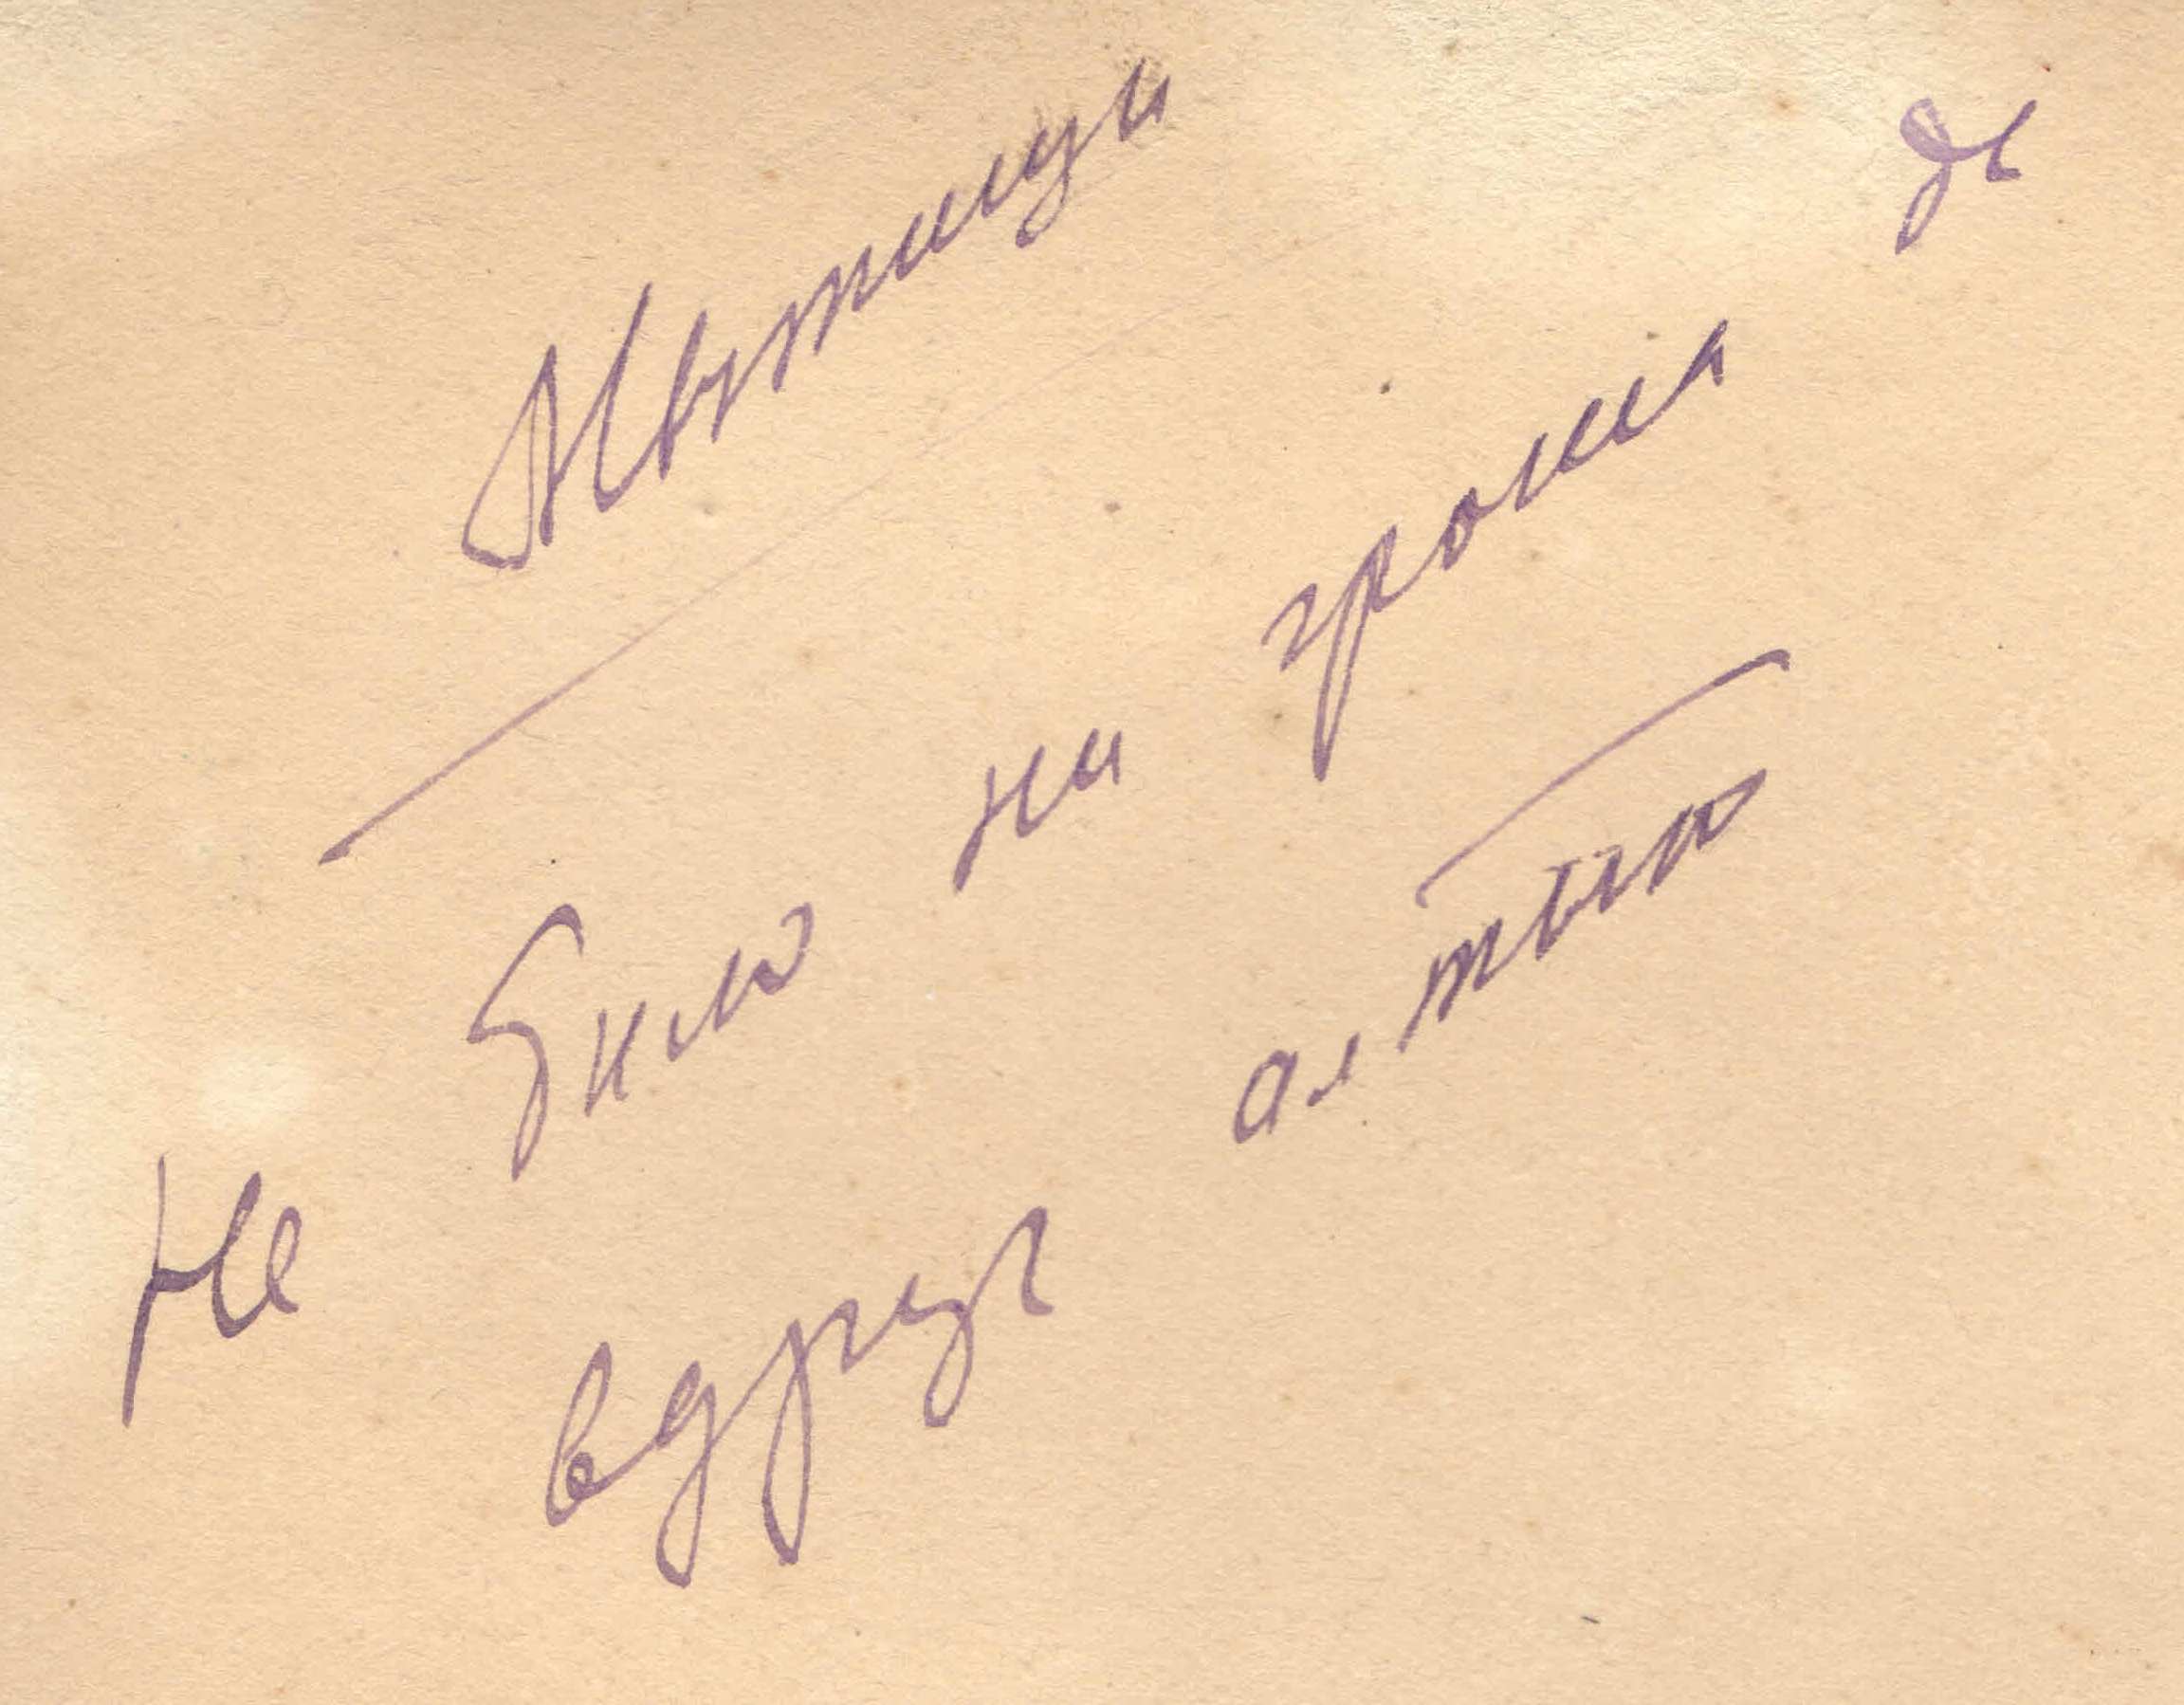 Мытищи
Не было ни гроша да
вдруг алтын